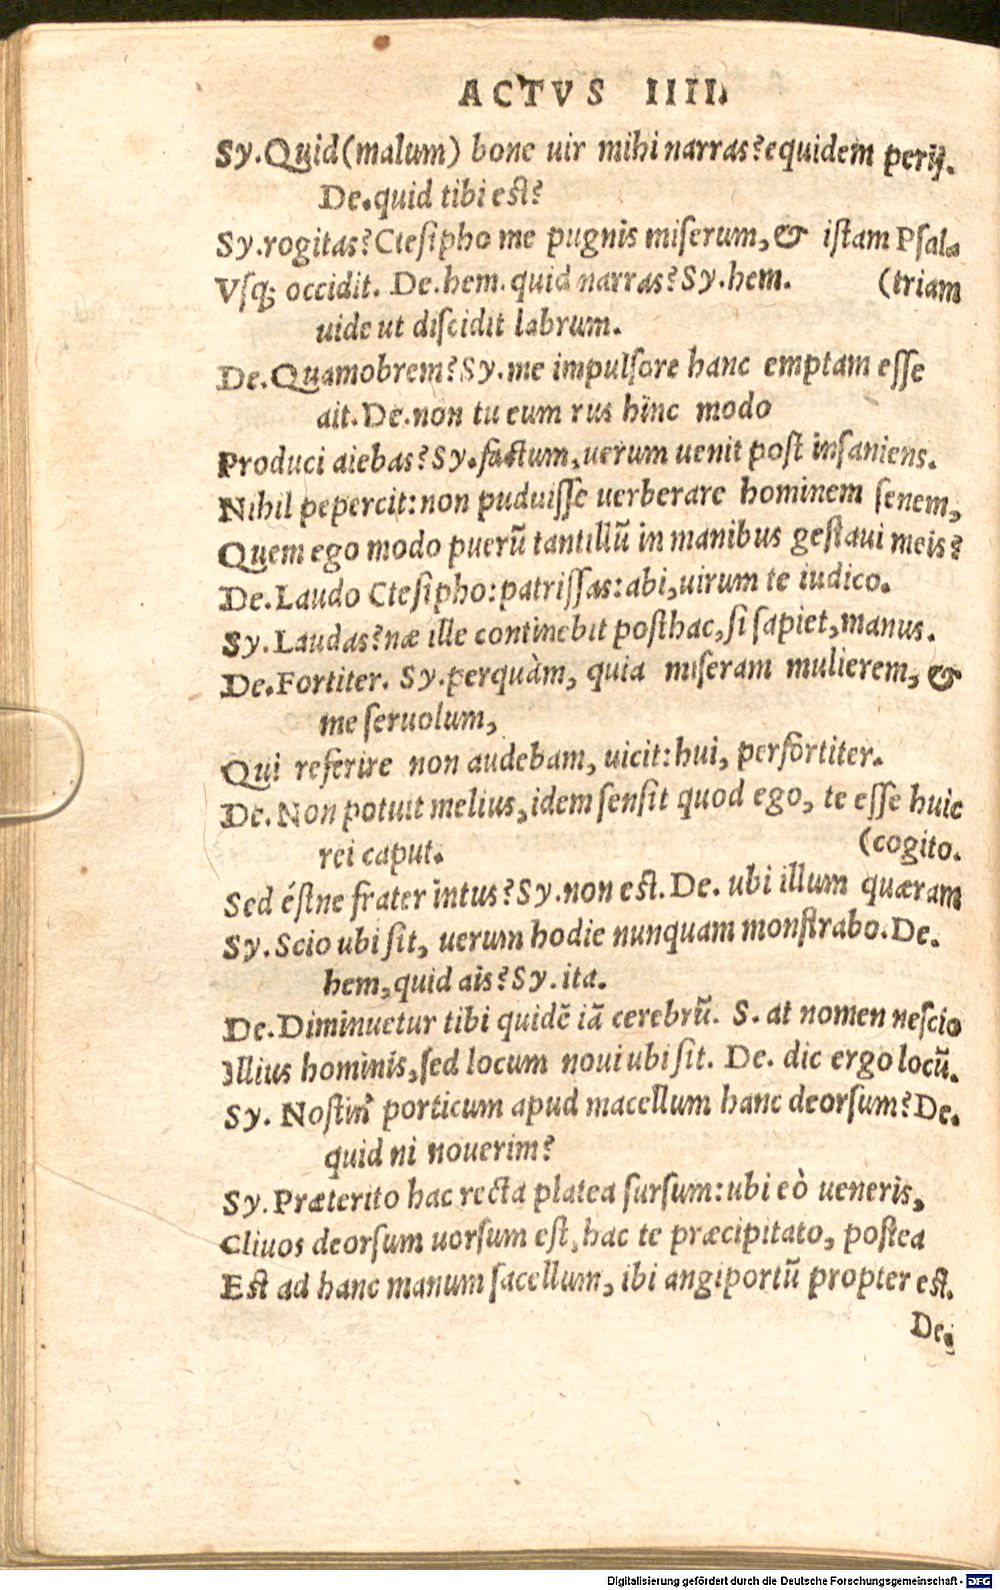 ACTVS IIII.
Sy.Quid(malum) bone uir mihi narras?equidem perij.
De.quid tibi est?
Sy.rogitas?Ctesipho me pugnis miserum,& istam Psal-
Vsq; occidit. De.hem.quid narras?Sy.hem. (triam
uide ut discidit labrum.
De.Quamobrem?Sy.me impulsore hanc emptam esse
ait.De.non tu eum rus hinc modo
Produci aiebas?Sy.factum,uerum uenit post insaniens.
Nihil pepercit:non puduisse uerberare hominem senem,
Quem ego modo puerū tantillū in manibus gestaui meis?
De.Laudo Ctesipho:patrissas:abi,uirum te iudico.
Sy.Laudas?næ ille continebit posthac,si sapiet,manus.
De.Fortiter. Sy.perquàm, quia miseram mulierem, &
me seruolum,
Qui referire non audebam, uicit:hui, perfortiter.
De.Non potuit melius,idem sensit quod ego, te esse huic
rei caput. (cogito.
Sed éstne frater intus?Sy.non est.De. ubi illum quæram
Sy.Scio ubi sit, uerum hodie nunquam monstrabo.De.
hem,quid ais?Sy.ita.
De.Diminuetur tibi quidē iā cerebrū. S. at nomen nescio
Illius hominis,sed locum noui ubi sit. De. dic ergo locū.
Sy. Nostin' porticum apud macellum hanc deorsum?De.
quid ni nouerim?
Sy.Præterito hac recta platea sursum:ubi eò ueneris,
Cliuos deorsum uorsum est,hac te præcipitato, postea
Est ad hanc manum sacellum, ibi angiportū propter est.
De.
Digitalisierung gefördert durch die Deutsche Forschungsgemeinschaft - DFG